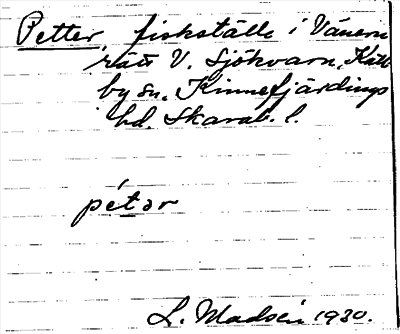 Petter, fiskställe i Vänern
rätt V. Sjökvarn, Käll
by sn, Kinnefjärdings
hd. Skarab. l.
pétər
L. Madsén 1930.